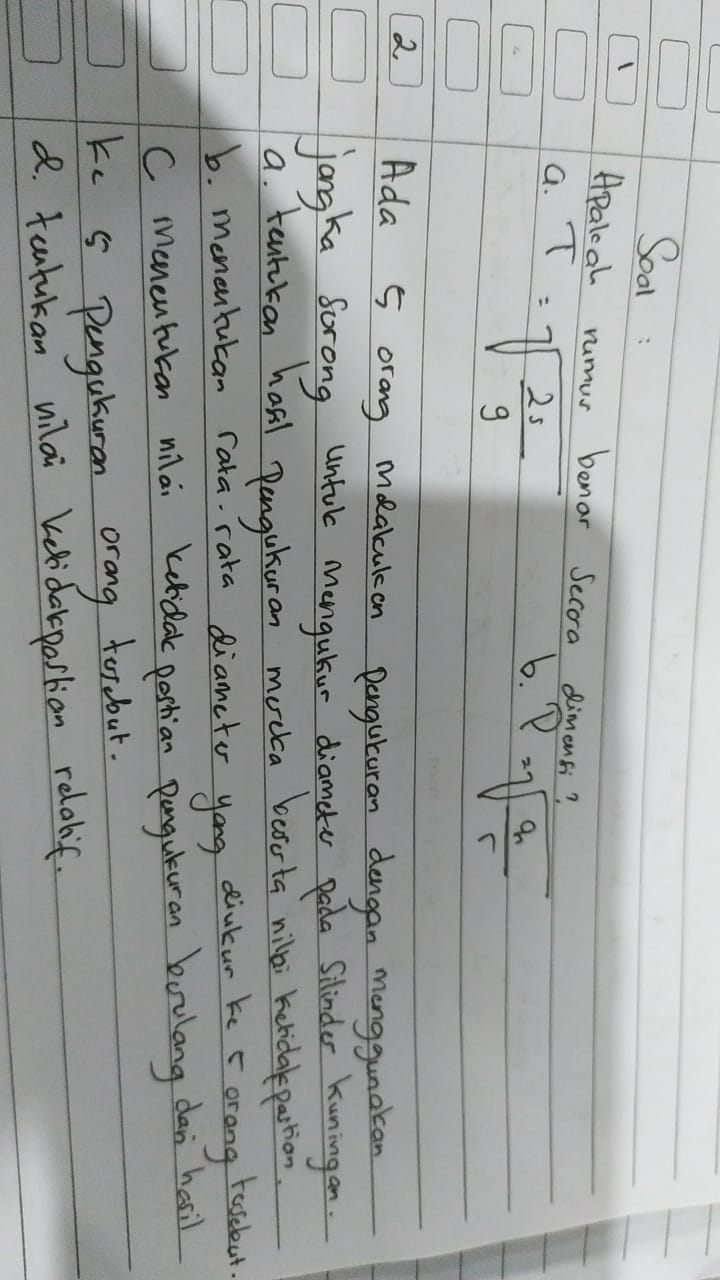 Soal :
1 Apakah rumus benar secara dimensi?
a. T = √(2s/g) b. P = √(a/r)
2 Ada 5 orang melakukan pengukuran dengan menggunakan
jangka sorong untuk mengukur diameter pada silinder kuningan.
a. tentukan hasil pengukuran mereka beserta nilai ketidakpastian.
b. menentukan rata-rata diameter yang diukur ke 5 orang tersebut.
C menentukan nilai ketidakpastian pengukuran berulang dari hasil
ke 5 pengukuran orang tersebut.
d. tentukan nilai ketidakpastian relatif.